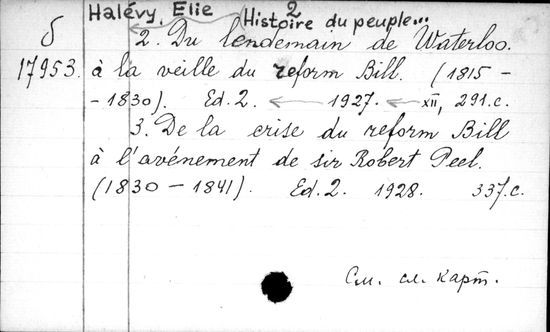 Halévy, Elie 2
Histoire du peuple...
б
17953.
2. Du lendemain de Waterloo.
à la veille du reform Bill. (1815 -
- 1830). Ed. 2. ← 1927. ← XII, 291.c.
3. De la crise du reform Bill
à l'avénement de sir Robert Peel.
(1830 - 1841). Ed. 2. 1928. 337.c.
См. сл. карт.